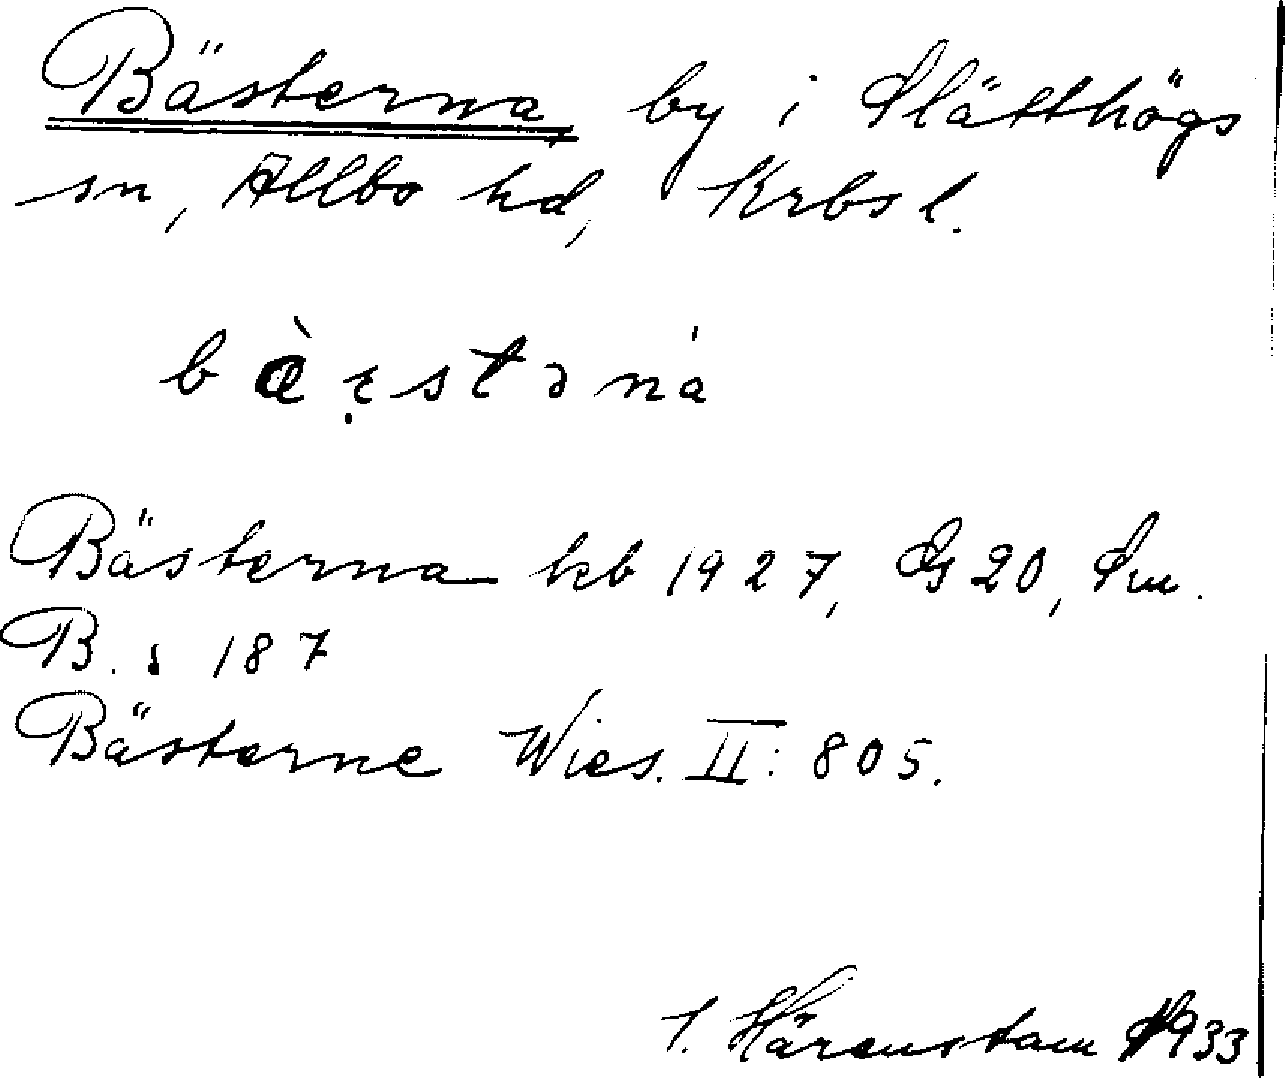 Bästerna, by i Slätthögs
sn, Allbo hd, Krbs l.
bæ̀ꞧ̣stəna̍
Bästerna kb 1927, GS 20, Sm.
B. s 187
Bästerne Wies. II: 805.
1. Härenstam 1933